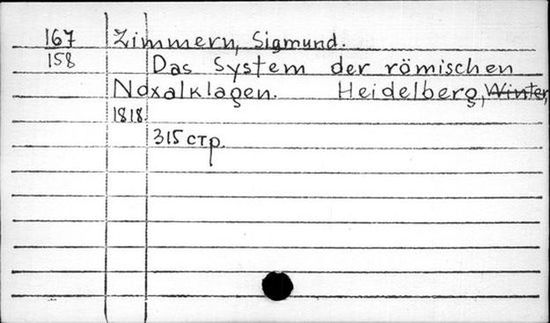 167 Zimmern, Sigmund.
158 Das System der römischen
Noxalklagen. Heidelberg, Winter,
1818.
315 стр.